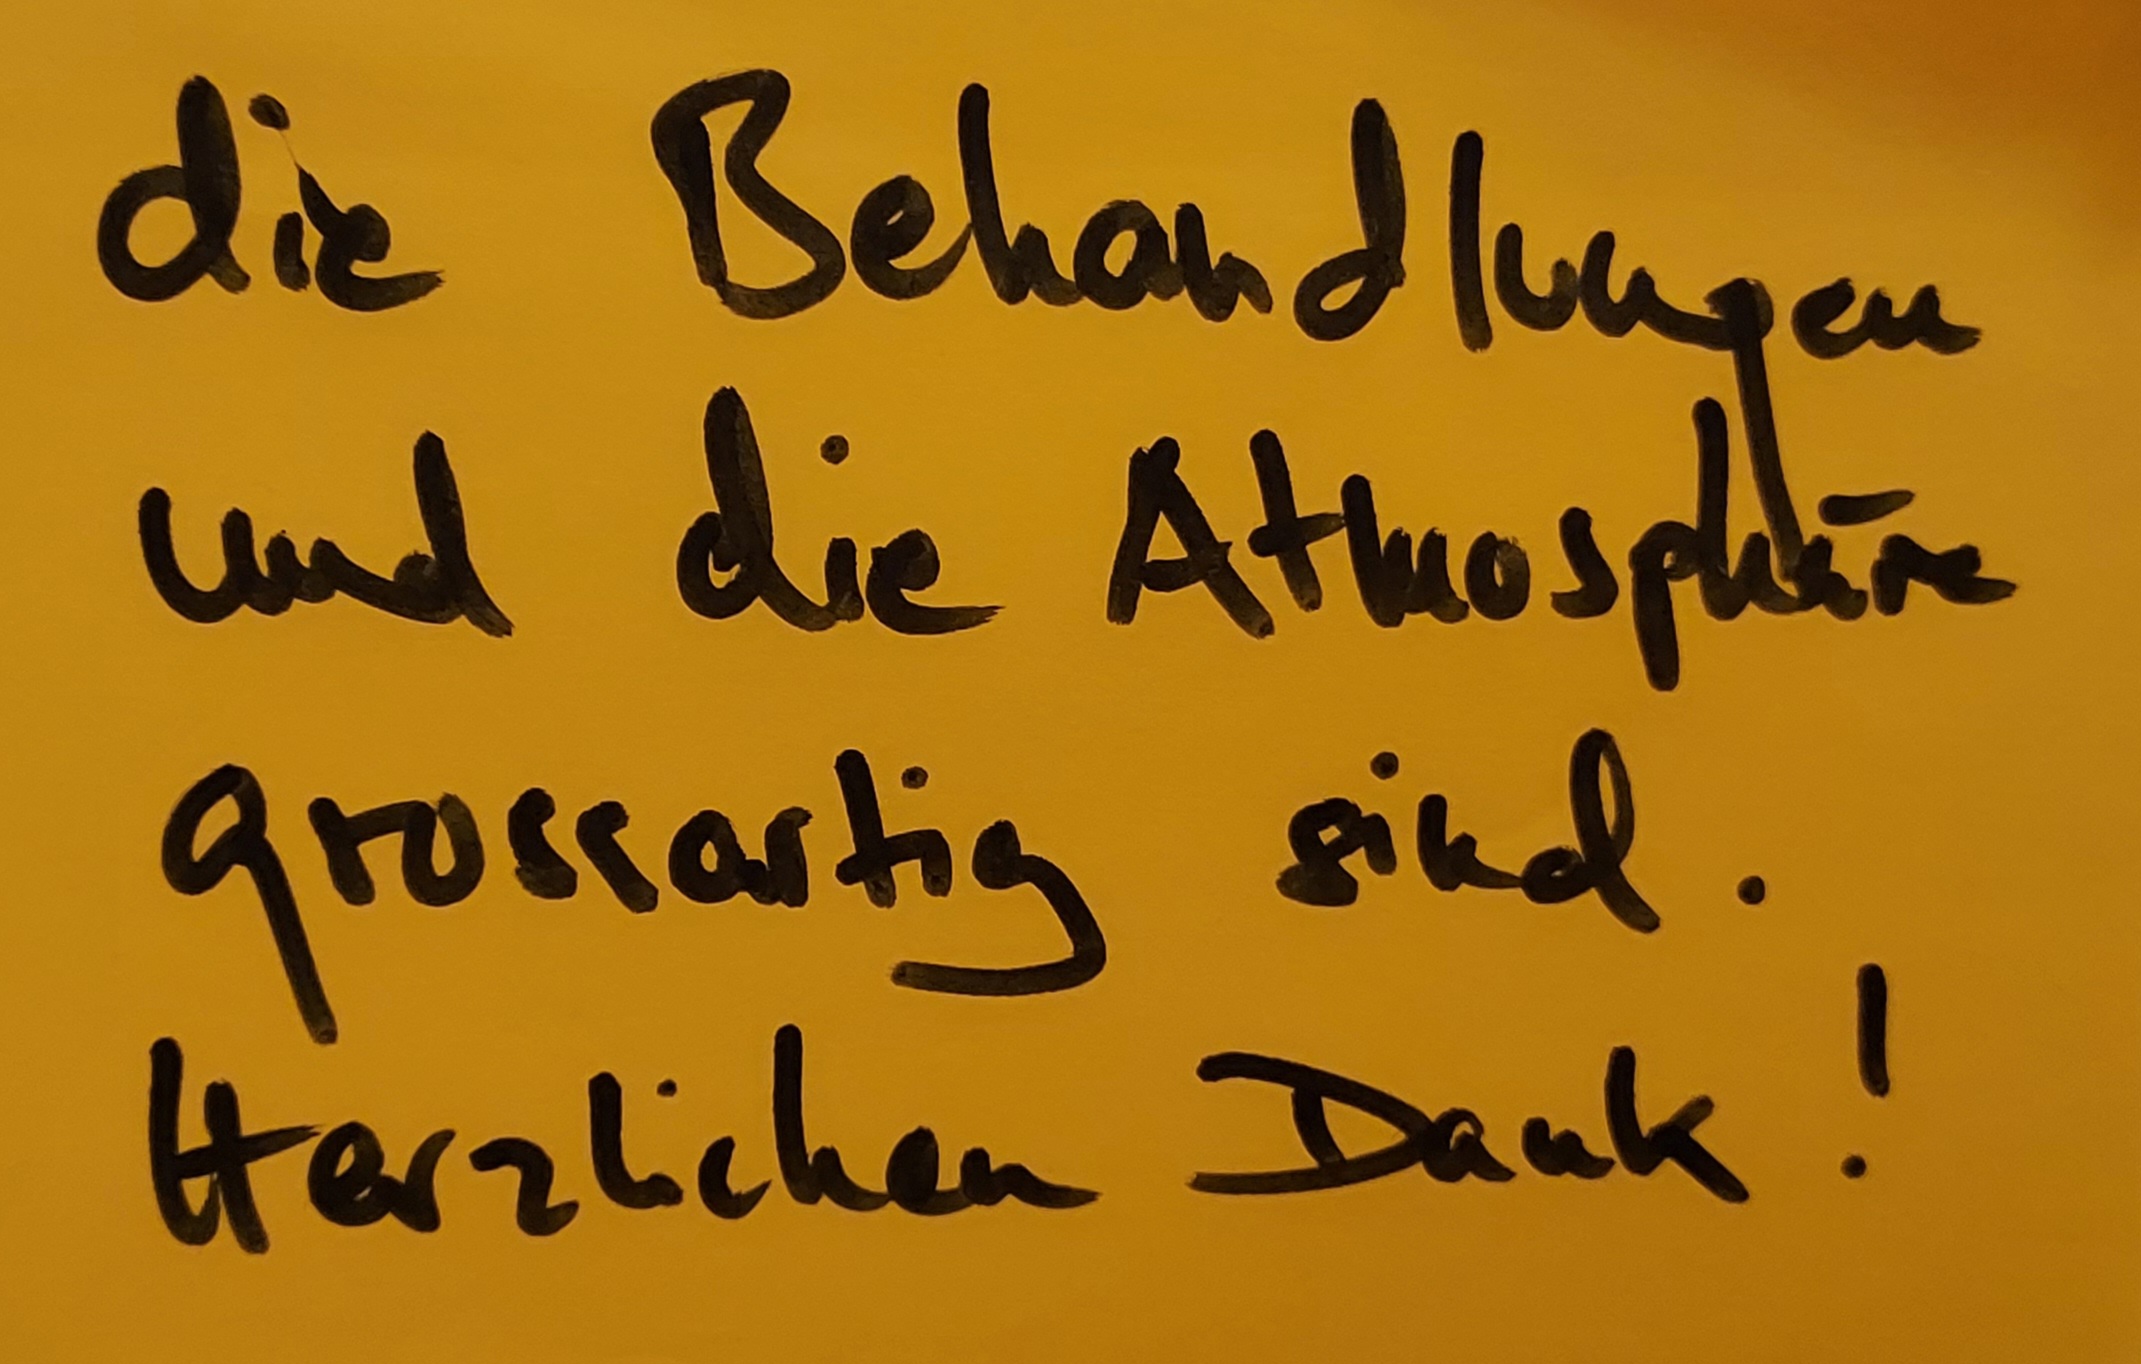 die Behandlungen
und die Atmosphäre
grossartig sind.
Herzlichen Dank!